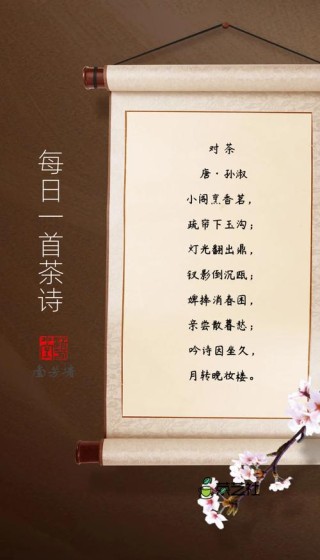 每日一首茶诗
对茶
唐·孙淑
小阁烹香茗，
疏帘下玉沟；
灯光翻出鼎，
钗影倒沉瓯；
婢捧消春困，
亲尝散暮愁；
吟诗因坐久，
月转晚妆楼。